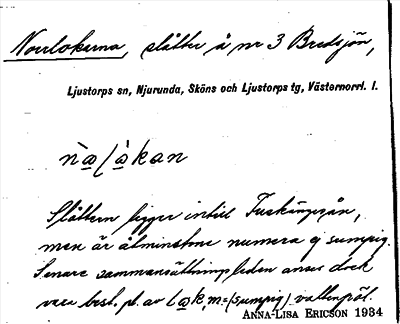 Norrlokarna, slåtter å nr 3 Bredsjön,
Ljustorps sn, Njurunda, Sköns och Ljustorps tg, Västernorrl. l.
Slåttern ligger intill
men är åtminstone numera ej sumpig.
Senare sammansättningsleden anses dock
vara best. pl. av m. = (sumpig) vattenpöl.
ANNA-LISA ERICSON 1934